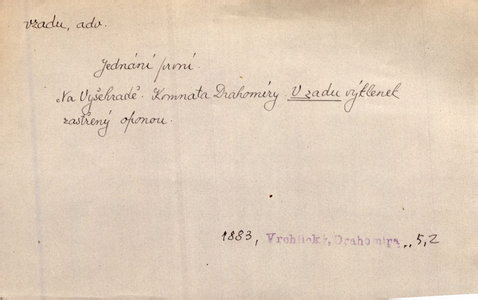 vzadu, adv.
Jednání první.
Na Vyšehradě. Komnata Drahomíry Vzadu výklenek
zastřený oponou.
1883, Vrchlický, Drahomíra,, 5,2